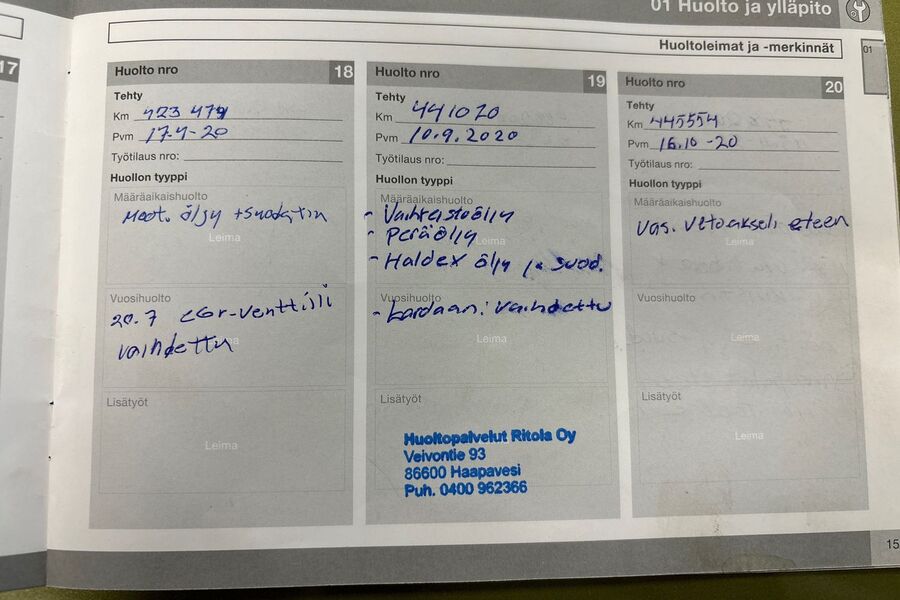 01 Huolto ja ylläpito
Huoltoleimat ja -merkinnät
01
17
Huolto nro 18
Tehty
Km 423 479
Pvm 17.4-20
Työtilaus nro:
Huollon tyyppi
Määräaikaishuolto
Moot. öljy + suodatin
Leima
Vuosihuolto
20.7 EGR-venttiili
vaihdettu
Lisätyöt
Leima
Huolto nro 19
Tehty
Km 441070
Pvm 10.9.2020
Työtilaus nro:
Huollon tyyppi
Määräaikaishuolto
- Vaihteistoöljy
- Peräöljy
Leima
- Haldex öljy ja suod.
Vuosihuolto
- Kardaani vaihdettu
Leima
Lisätyöt
Huoltopalvelut Ritola Oy
Veivontie 93
86600 Haapavesi
Puh. 0400 962366
Huolto nro 20
Tehty
Km 445554
Pvm 16.10 -20
Työtilaus nro:
Huollon tyyppi
Määräaikaishuolto
Vas. vetoakseli eteen
Leima
Vuosihuolto
Leima
Lisätyöt
Leima
15